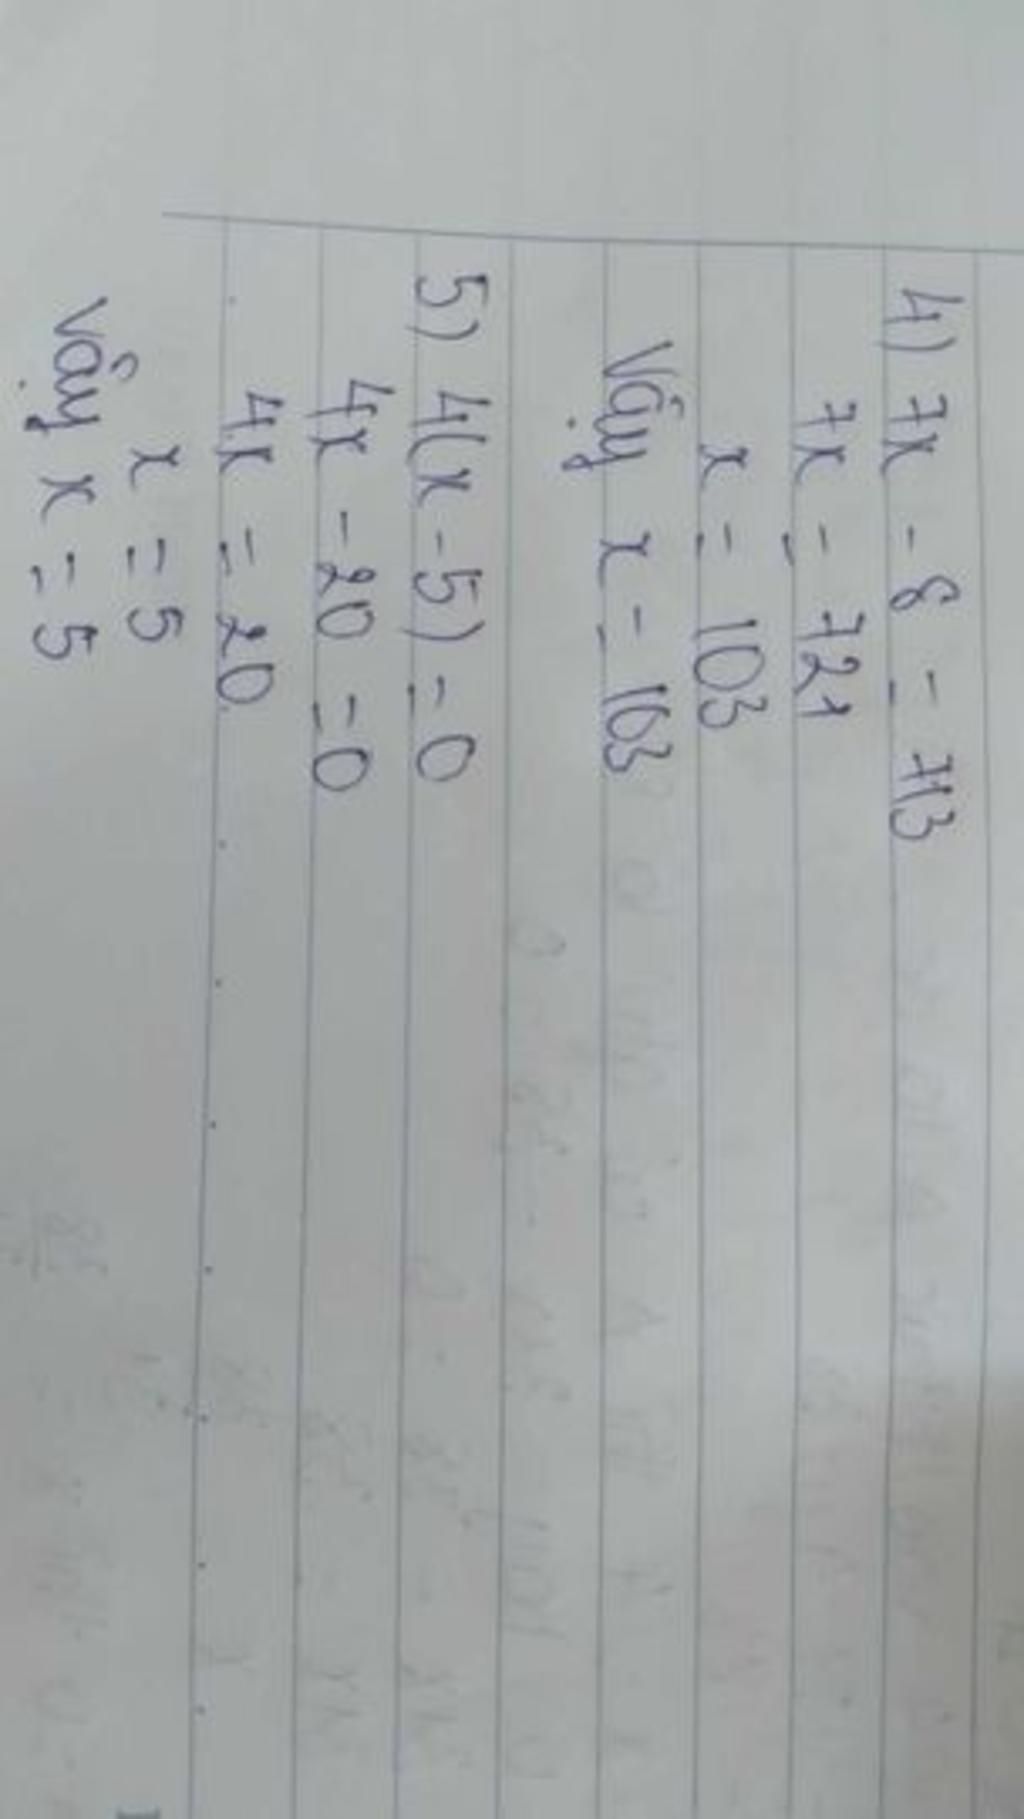 4) 7x - 8 = 713
7x = 721
x = 103
Vậy x = 103
5) 4(x - 5) = 0
4x - 20 = 0
4x = 20
x = 5
Vậy x = 5